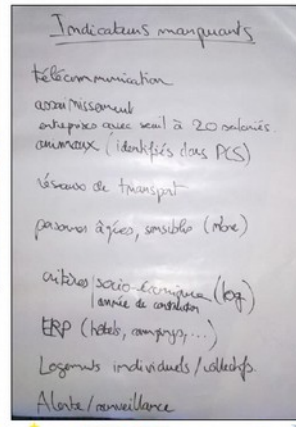 Indicateurs manquants
télécommunication
assainissement
entreprises avec seuil à 20 salariés.
animaux (identifiés dans PCS)
réseaux de transport
personnes âgées, sensibles (nbre)
critères socio-économique (log)
/ année de construction
ERP (hôtels, campings, ...)
Logements individuels / collectifs.
Alerte / surveillance